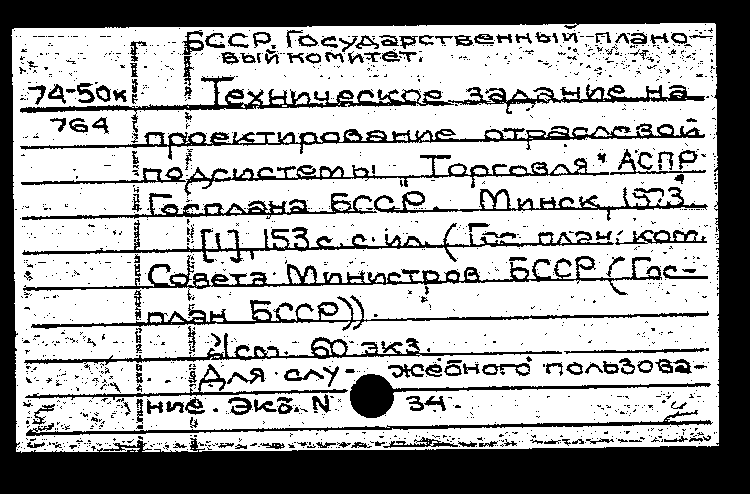 БССР. Государственный плано-
вый комитет.
74-50к Техническое задание на
764
проектирование отраслевой
подсистемы „Торговля“ АСПР
Госплана БССР. Минск, 1973.
[1], 153 с. с ил. (Гос. план. ком.
Совета Министров БССР (Гос-
план БССР)).
60 экз.
Для слу- жебного пользова-
ние. Экз. N 34.